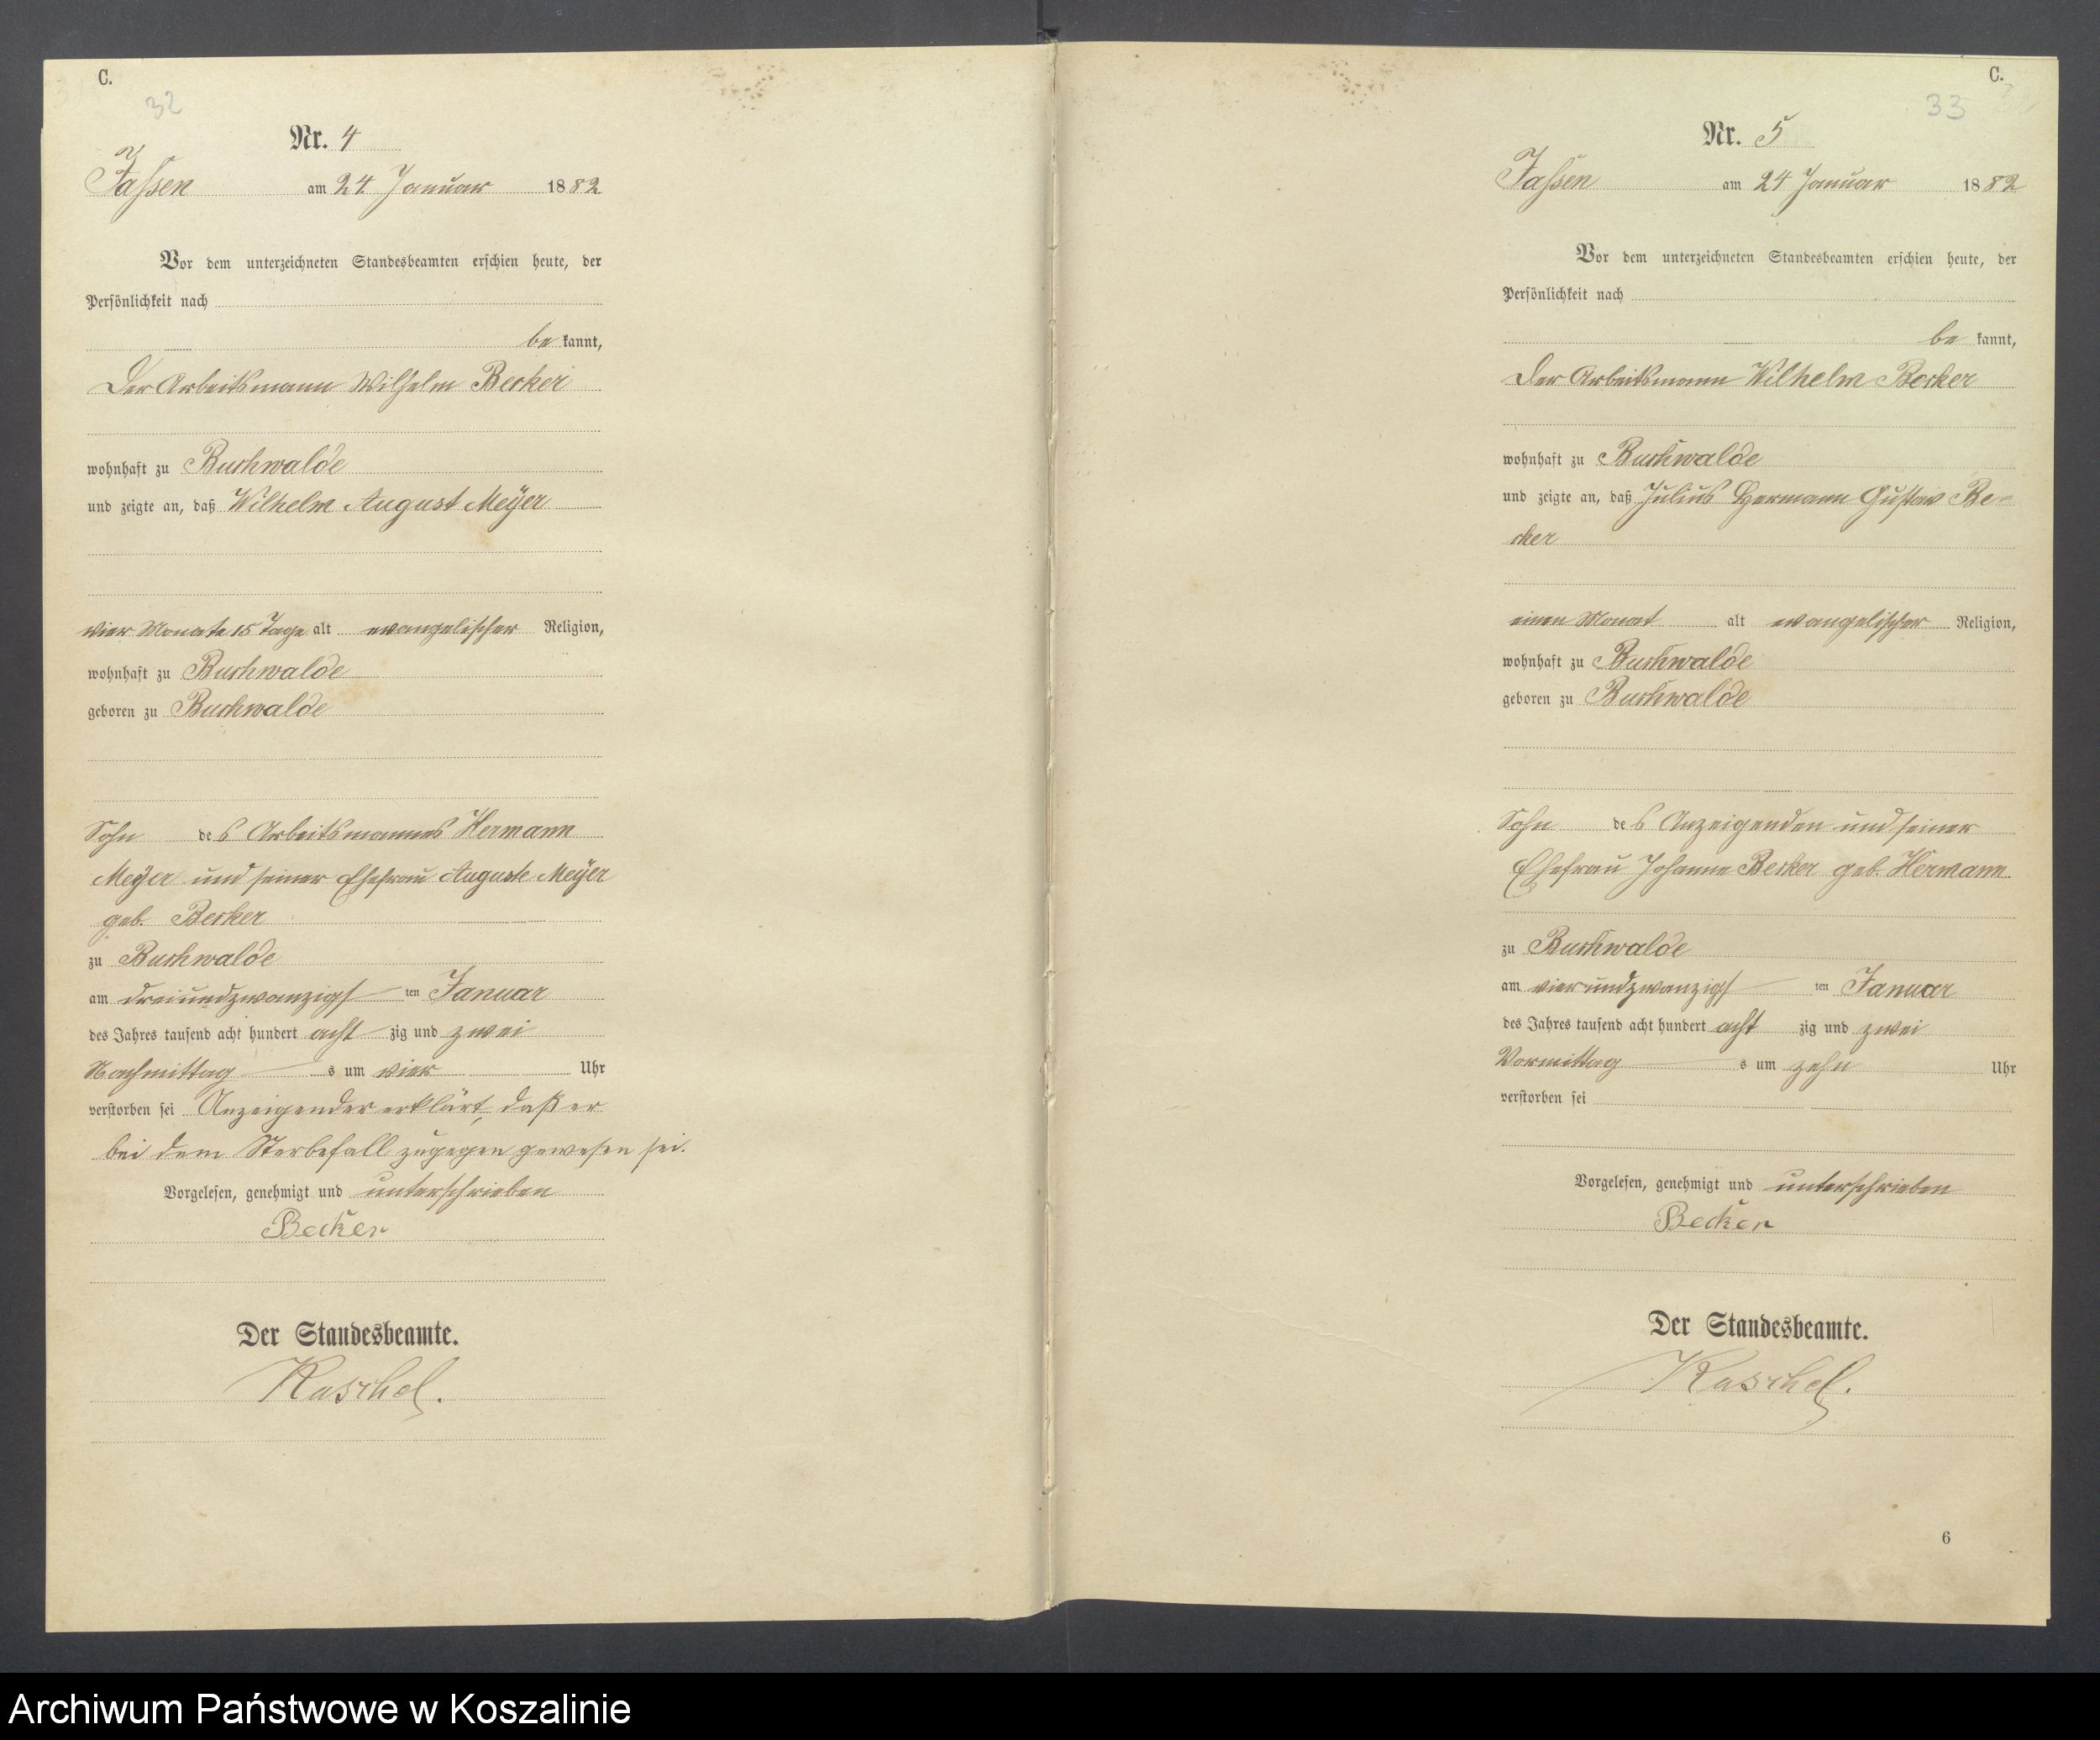 C.
32
Nr. 4
Jassen am 24 Januar 1882
Vor dem unterzeichneten Standesbeamten erschien heute, der
Persönlichkeit nach
be kannt,
Der Arbeitsmann Wilhelm Becker
wohnhaft zu Buchwalde
und zeigte an, daß Wilhelm August Meÿer
vier Monate 15 Tage alt evangelischer Religion,
wohnhaft zu Buchwalde
geboren zu Buchwalde
Sohn des Arbeitsmannes Hermann
Meÿer und seiner Ehefrau Auguste Meÿer
geb. Becker
zu Buchwalde
am dreiundzwanzigsten Januar
des Jahres tausend acht hundert acht zig und zwei
Nachmittags um vier Uhr
verstorben sei Anzeigender erklärt, daß er
bei dem Sterbefall zugegen gewesen sei.
Vorgelesen, genehmigt und unterschrieben
Becker
Der Standesbeamte.
Kuschel.
C.
33
Nr. 5
Jassen am 24 Januar 1882
Vor dem unterzeichneten Standesbeamten erschien heute, der
Persönlichkeit nach
be kannt,
Der Arbeitsmann Wilhelm Becker
wohnhaft zu Buchwalde
und zeigte an, daß Julius Hermann Gustav Be-
cker
einen Monat alt evangelischer Religion,
wohnhaft zu Buchwalde
geboren zu Buchwalde
Sohn des Anzeigenden und seiner
Ehefrau Johanne Becker geb. Hermann
zu Buchwalde
am vierundzwanzigsten Januar
des Jahres tausend acht hundert acht zig und zwei
Vormittags um zehn Uhr
verstorben sei
Vorgelesen, genehmigt und unterschrieben
Becker
Der Standesbeamte.
Kuschel.
6
Archiwum Państwowe w Koszalinie